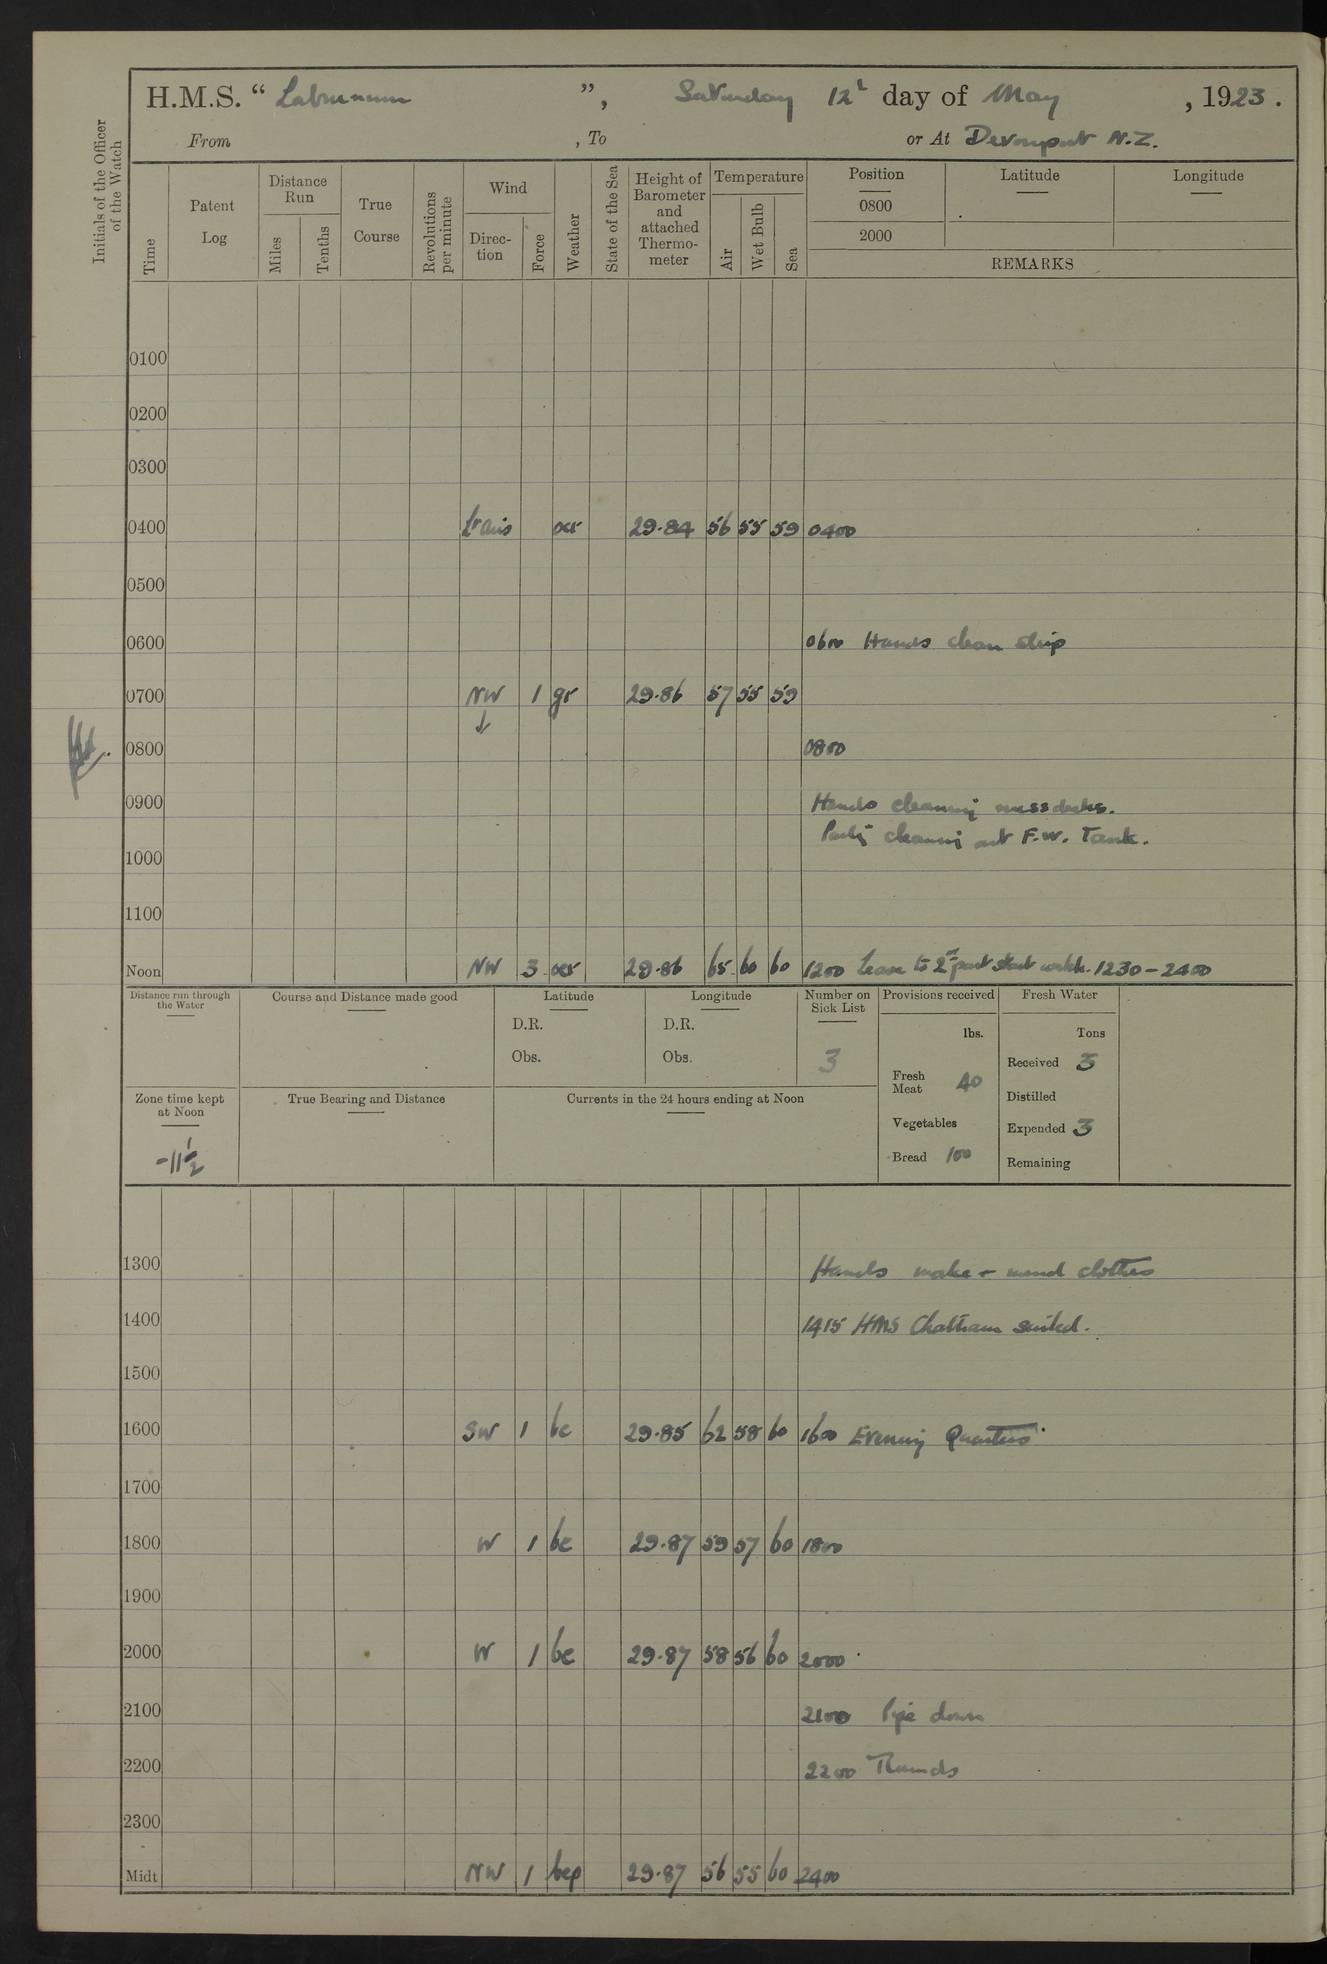 H.M.S. “ Laburnum ”, Saturday 12th day of May , 1923.
From , To or At Devonport N.Z.
Initials of the Officer of the Watch
Time
Patent Log
Distance Run
Miles
Tenths
True Course
Revolutions per minute
Wind
Direc-tion
Force
Weather
State of the Sea
Height of Barometer and attached Thermo-meter
Temperature
Air
Wet Bulb
Sea
Position
Latitude
Longitude
0800
2000
REMARKS
0100
0200
0300
0400 29.84 56 55 59 0400
0500
0600 0600 Hands clean ship
0700 NW 1 gr 29.86 57 55 59
0800 0800
0900 Hands cleaning messdecks.
Party cleaning out F.W. Tank.
1000
1100
Noon NW 3 ocr 29.86 65 60 60 1200 Leave to 2nd part watch. 1230 – 2400
Distance run through the Water
Course and Distance made good
Latitude
D.R.
Obs.
Longitude
D.R.
Obs.
Number on Sick List
3
Provisions received
lbs.
Fresh Meat 40
Vegetables
Bread 100
Fresh Water
Tons
Received 3
Distilled
Expended 3
Remaining
Zone time kept at Noon
-11½
True Bearing and Distance
Currents in the 24 hours ending at Noon
1300 Hands make & mend clothes
1400 1415 HMS Chatham sailed.
1500
1600 SW 1 bc 29.85 62 58 60 1600 Evening Quarters
1700
1800 W 1 bc 29.87 59 57 60 1800
1900
2000 W 1 bc 29.87 58 56 60 2000
2100 2100 Pipe down
2200 2200 Rounds
2300
Midt NW 1 bcp 29.87 56 55 60 2400